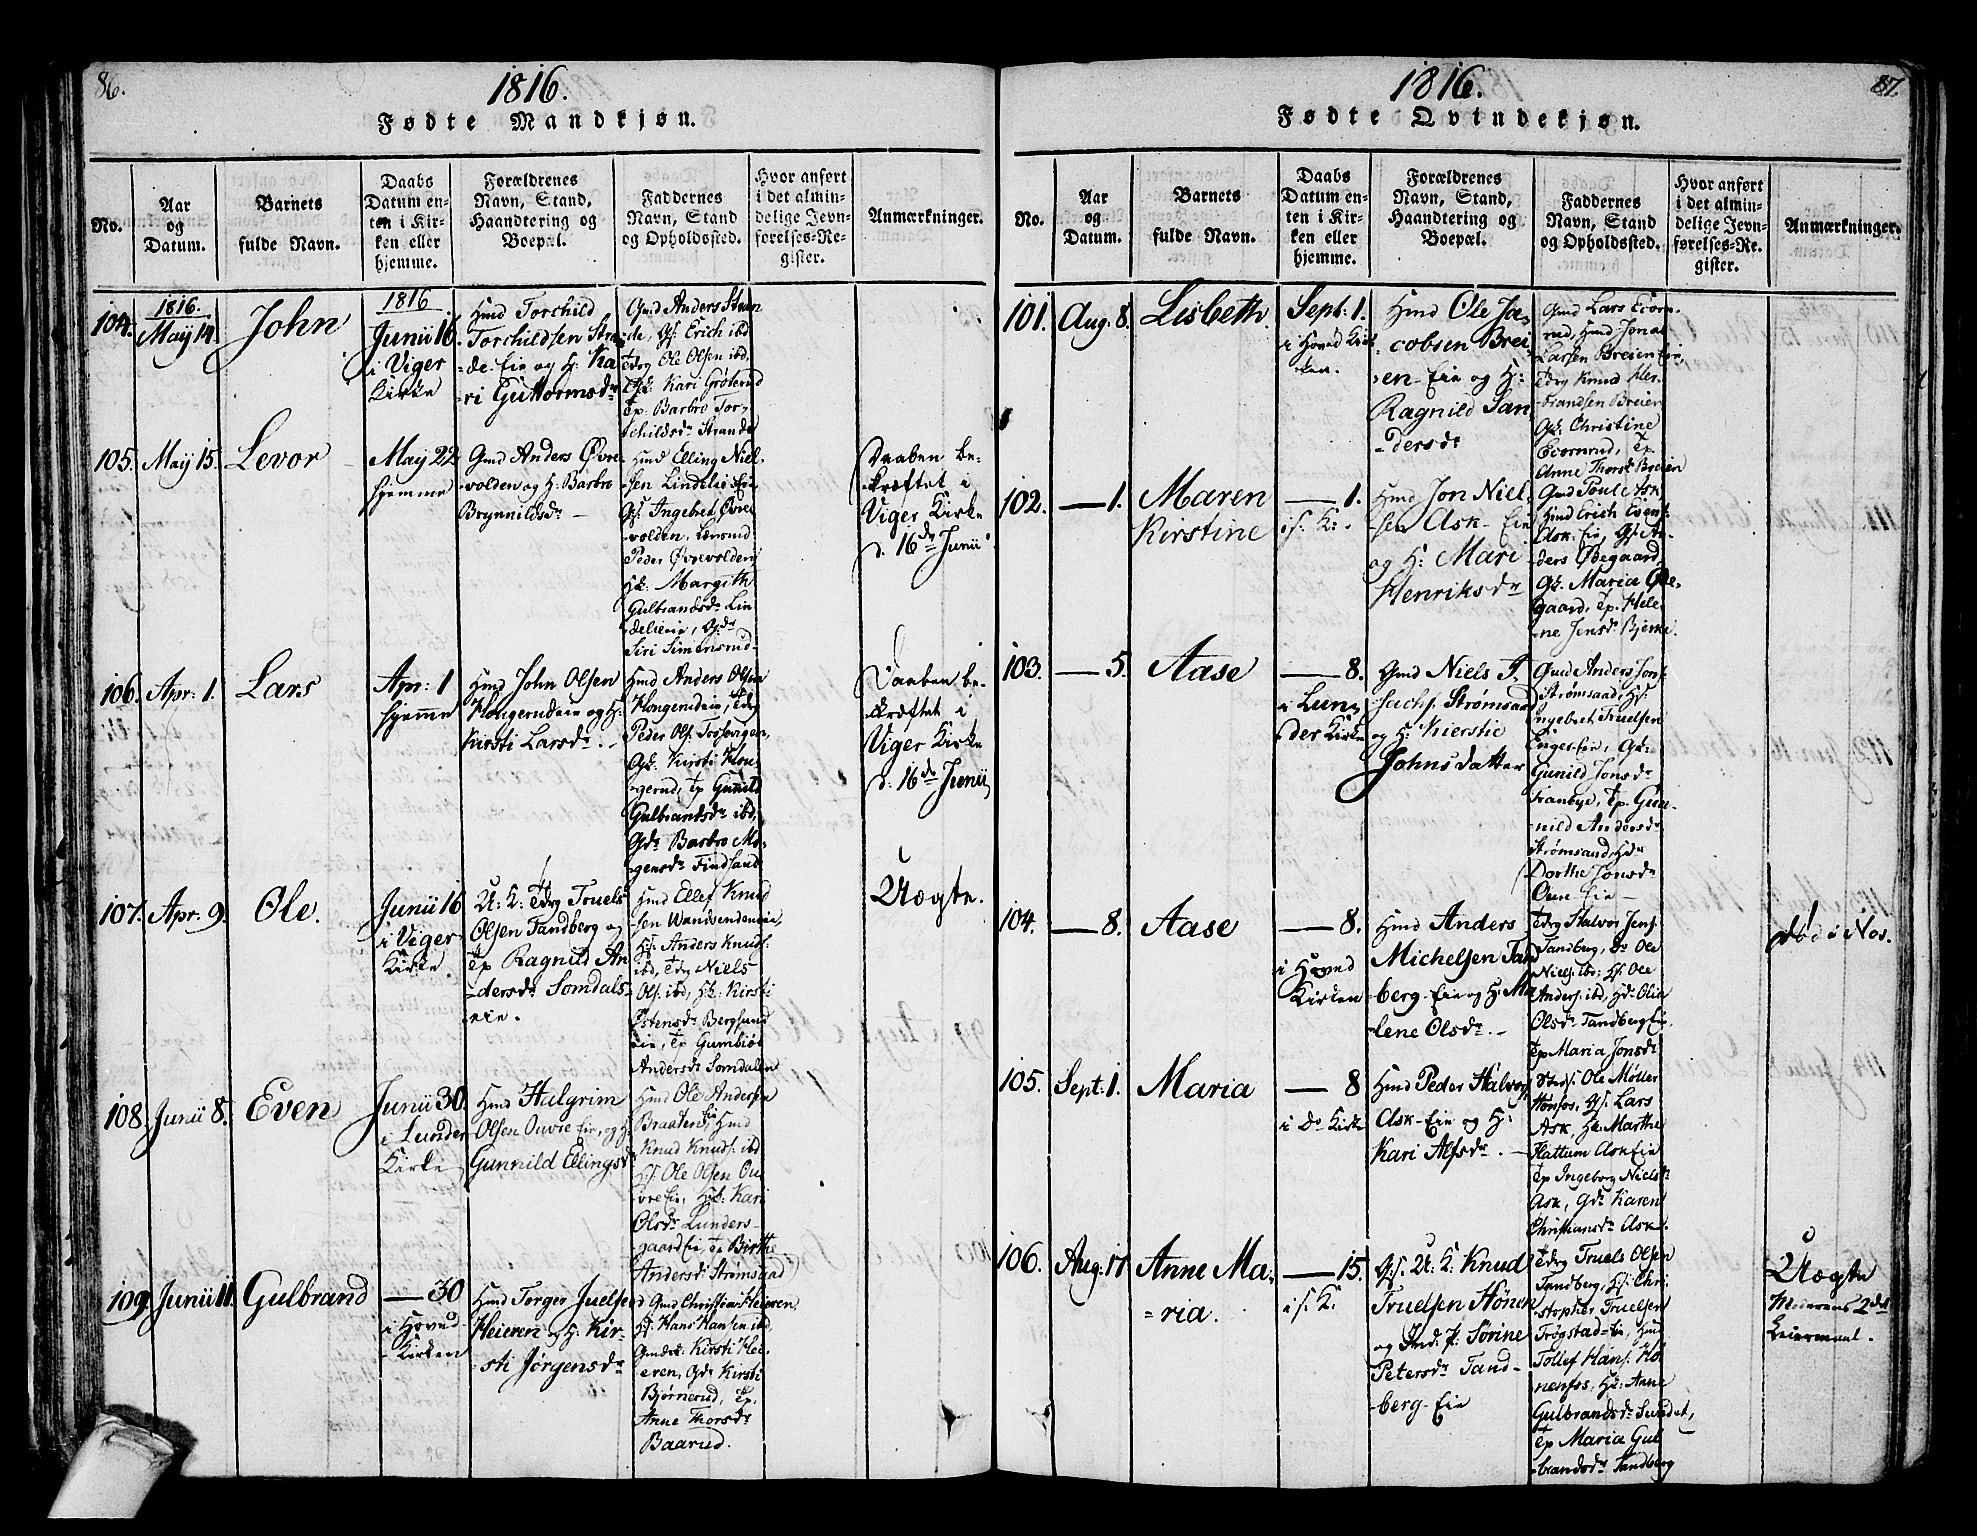 86.
1816.
Fødte Mandkjøn.
No.
Aar
og
Datum.
Barnets
fulde Navn.
Daabs
Datum en-
ten i Kir-
ken eller
hjemme.
Forældrenes
Navn, Stand,
Haandtering og
Boepæl.
Faddernes
Navn, Stand
og Opholdssted.
Hvor anført
i det almin-
delige Jevn-
førelses-Re-
gister.
Anmærkninger.
104.
1816.
May 14.
John
1816
Junii 16
i Viger
Kirke
Hmd Torchild
Torchildsen Stran
de-Eie og H: Ka
ri Guttormsdr
Gmd Anders Stran
de, Gs. Erich ibd
Tdrg Ole Olsen ibd,
Gk. Kari Grøterud
Tp: Barbro Tor-
childsdr Strande
105.
May 15.
Levor
May 22
hjemme
Gmd Anders Øvre-
volden og H: Barbro
Brynnildsdr
Hmd Elling Niel-
sen Lindelie Eie
Gs. Ingebret Øvre
volden,
Peder Øvrevolden
Hk: Margith
Gulbrandsdr Lin
delieeie, Gdr
Siri Simensrud
Daaben be-
kræftet i
Viger Kirke
d. 16de Junii
106.
Apr: 1.
Lars
Apr: 1
hjemme
Hmd John Olsen
Kongerudeie og H:
Kirsti Larsdr.
Hmd Anders Olsen
Kongerudeie, Tdrg
Peder Ols.
Gk. Kirsti Kon-
gerud, Tp Gunild
Gulbrandsdr ibd,
Gdr Barbro Mo-
gensdr Findsand
Daaben be-
kræftet i
Viger Kirke
d. 16de Junii
107.
Apr: 9.
Ole.
Junii 16
i Viger
Kirke.
U: K: Tdrg Truels
Olsen Tandberg og
Tp Ragnild An
dersdr Somdals-
eie.
Hmd Ellef Knud
sen Wandvendeneie,
Hs. Anders Knuds.
ibd, Tdrg Niels
Ols. ibd, Hk: Kirsti
Østensdr Berglund
eie, Tp Gumbiør
Andersdr Somdalen
Uægte.
108.
Junii 8.
Even
Junii 30.
i Lunder
Kirke
Hmd Halgrim
Olsen Ouvre Eie, og H:
Gunnild Ellingsdr
Hmd Ole Andersen
Braaten Eie, Hmd
Knud Knuds. ibd
Hs. Ole Olsen Ou
vre Eie, Hk: Kari
Olsdr Lunders-
gaard Eie, Tp Birthe
Andersdr Strømsaad
109.
Junii 11.
Gulbrand
— 30
i Hoved
Kirken
Hmd Torger Juelsen
Heieren og H: Kir-
sti Jørgensdr
Gmd Christian Heieren
Hs. Hans Hansen ibd,
Gmdsk: Kirsti Hei-
eren, Gdr Kirsti
Bjørnerud, Tp:
Anne Thorsdr
Baarud.
87.
1816.
Fødte Qvindekjøn.
No.
Aar
og
Datum.
Barnets
fulde Navn.
Daabs
Datum en-
ten i Kir-
ken eller
hjemme.
Forældrenes
Navn, Stand,
Haandtering og
Boepæl.
Faddernes
Navn, Stand
og Opholdssted.
Hvor anført
i det almin-
delige Jevn-
førelses-Re-
gister.
Anmærkninger.
101.
Aug: 8.
Lisbeth.
Sept: 1.
i Hoved Kir
ken.
Hmd Ole Ja
cobsen Brei
en-Eie og H:
Ragnild San
dersdr
Gmd Lars Ecorn-
rud, Hmd Jonas
Larsen Breien Eie,
Tdrg Knud Her-
brandsen Breien
Gk. Christine
Ecornrud, Tp.
Anne Thorsdr Breien
102.
— 1.
Maren
Kirstine
— 1.
i s. K.
Hmd Jon Niel
sen Ask-Eie
og H: Mari
Henriksdr
Gmd Poul Ask
Hmd Erich Evens.
Ask-Eie, Gs. An-
ders Ødegaard,
Gk. Maria Øde-
gaard, Tp. Hele
ne Jensdr Bjerke.
103.
— 5.
Aase
— 8.
i Lun
der Kirke
Gmd Niels I
sachs. Strømsaad
og H: Kierstie
Johnsdatter
Gmd Anders Jons.
Strømsaad, Hs:
Ingebret Truelsen
Enger Eie, Gk:
Gunild Jonsdr
Tranbye, Tp. Gun-
nild Andersdr
Strømsaad, Hdr
Dorthe Jonsdr
Oen Eie
104.
— 8.
Aase
— 8.
i Hoved
Kirken
Hmd Anders
Michelsen Tand
berg-Eie og H: Ma
lene Olsdr.
Tdrg Halvor Jens.
Tandberg, Do Ole
Niels. ibd: Hs. Ole
Anders. ibd, Hdr Olia
Olsdr Tandberg Eie,
Tp Maria Jonsdr
død i Nov.
105.
Sept: 1.
Maria
— 8
i Do Kirke
Hmd Peder Halvors.
Ask-Eie og H:
Kari Alfsdr.
Ole Møller
Hønfos, Gs. Lars
Ask, Hk Marthe
Hattum Ask Eie
Tp Ingeborg Nielsdr
Ask, Gdr Karen
Christiansdr Ask
106.
Aug: 17
Anne Ma
ria.
— 15.
i s. K.
Gs. U: K. Knud
Truelsen Hønen
og Ind. p: Sørine
Petersdr Tand-
berg-Eie
Tdrg Truels Olsen
Tandberg, Hs. Chri
stopher Truelsen
Trøgstad-Eie, Hmd
Tollef Hans. Hø
nenfos, Hk: Anne
Gulbrandsdr Sundet,
Tp Maria Gul
brandsdr Tandberg
Uægte
Moderens 2det
Leiermaal.